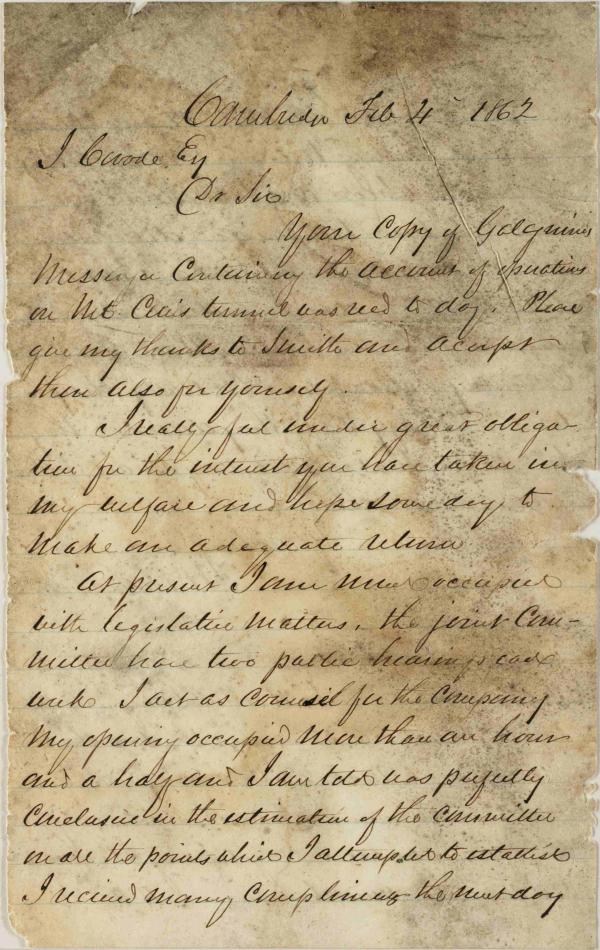 Cambridge Feb 4 1862
J. Coode, Esq
Dr Sir
Your Copy of Galignani's
Messenger Containing the account of operations
on Mt. Cenis tunnel was recd to day. Please
give my thanks to Smith and accept
them also for yourself.
I really feel under great obliga-
tion for the interest you have taken in
my welfare and hope some day to
make an adequate return
At present I am much occupied
with legislative matters, the joint Com-
mittee have two public hearings each
week I act as counsel for the Company
My opening occupied more than an hour
and a half and I am told was perfectly
Conclusive in the estimation of the committee
on all the points which I attempted to establish
I recieved many compliments the next day